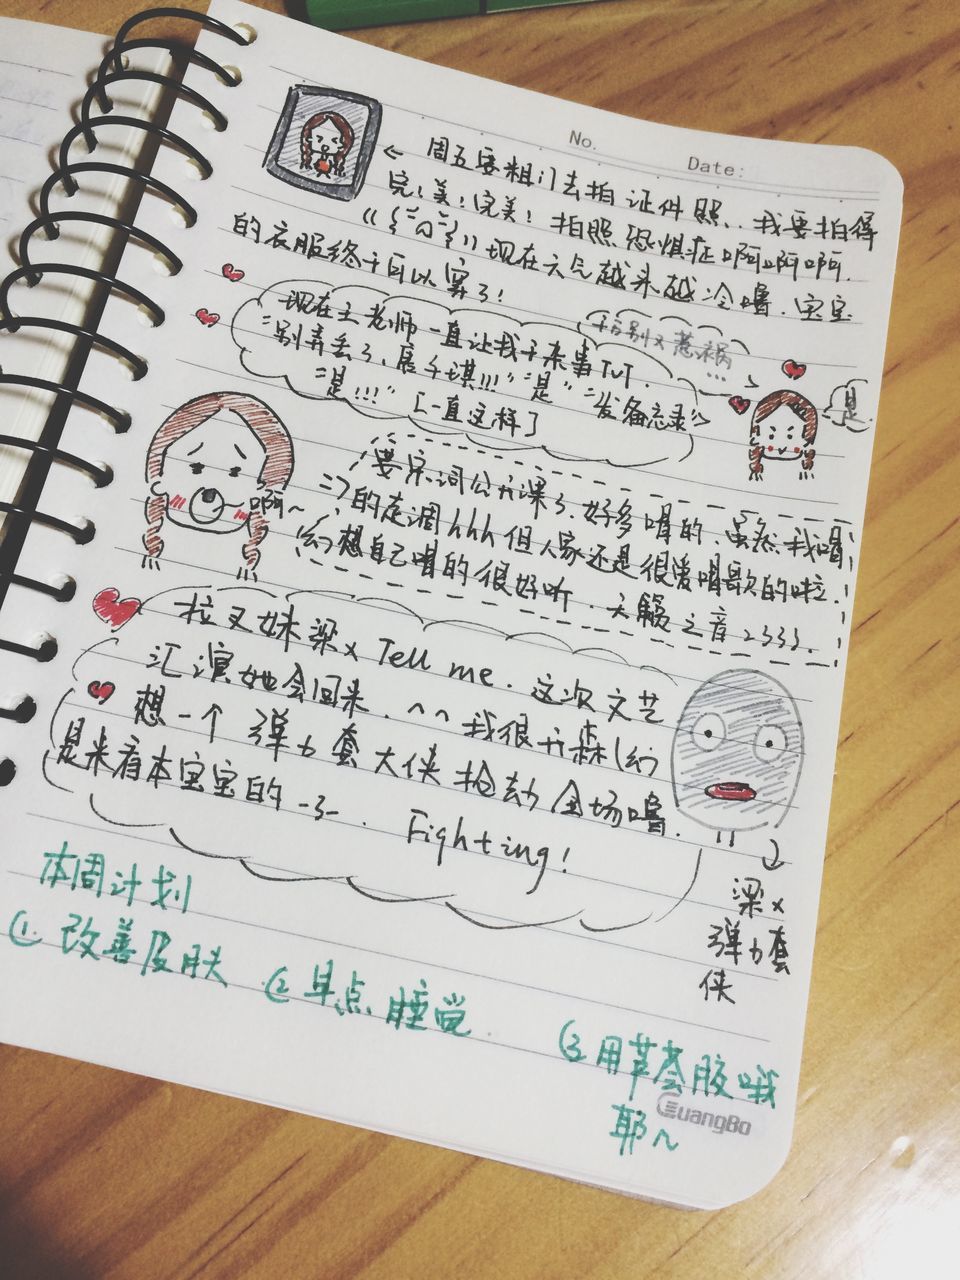 No.
Date:
← 周五要粗门去拍证件照..我要拍得
完！美！完美！拍照恐惧症啊啊啊.
现在天气越来越冷噜.宝宝
的衣服终于可以穿了！
千万别又惹祸
...
现在王老师一直让我干来事TVT.
"别弄丢了,詹千琪!!!" "是" "发备忘录"
"是!!!" [一直这样]
是.
啊~
要宋词公开课了.好多唱的.虽然我唱
=> 的走调hhh但人家还是很爱唱歌的啦.
(幻想自己唱的很好听.天籁之音2333.
拉又妹梁x Tell me.这次文艺
汇演她会回来.^^我很开森(幻
想一个弹力套大侠抢劫全场噜.
是来看本宝宝的-3-. Fighting!
梁x
弹力套
侠
本周计划
①.改善皮肤
② 早点睡觉.
③用芦荟胶哦
耶~
GuangBo